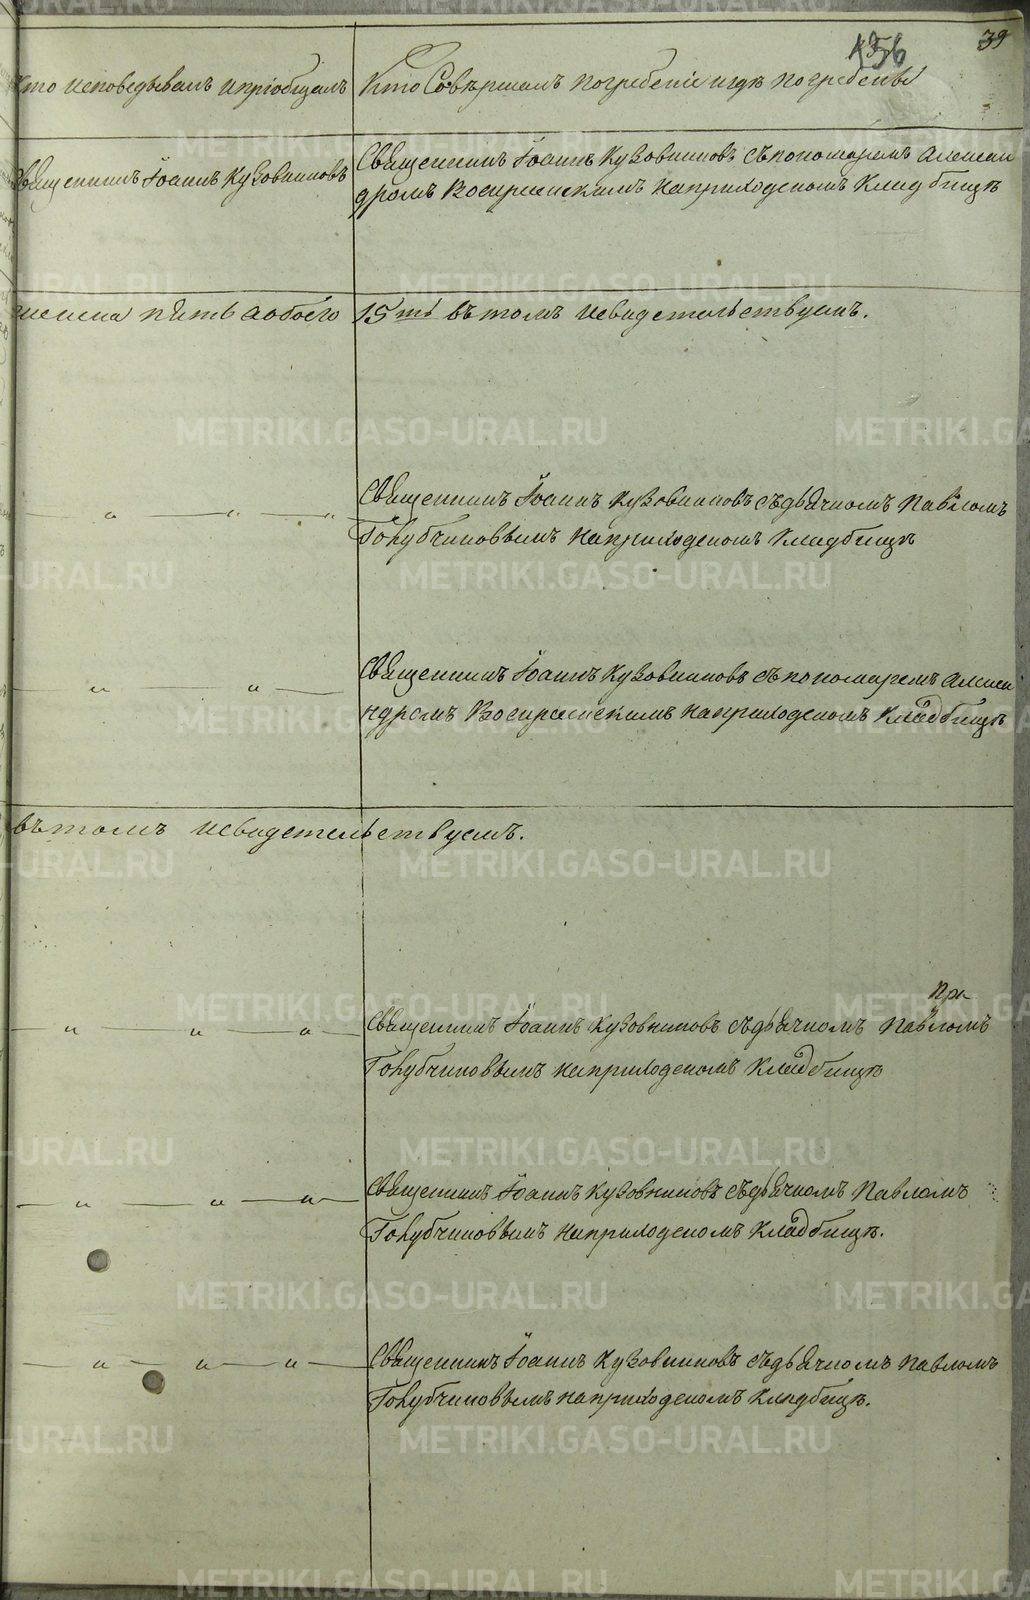 39
156
Кто исповедывалъ и пріобщалъ
Кто Совершалъ погребеніе и гдѣ погребены
Священникъ Іоаннъ Кузовниковъ
Священникъ Іоаннъ Кузовниковъ съ пономаремъ Алексан
дромъ Воскресенскимъ на приходскомъ Кладбищѣ
пять а обоего 15ть въ томъ и свидетельствуемъ.
Священникъ Іоаннъ Кузовниковъ съ дьячкомъ Павломъ
Голубчиковымъ на приходскомъ Кладбищѣ
Священникъ Іоаннъ Кузовниковъ съ пономаремъ Алекса
ндромъ Воскресенскимъ на приходскомъ Кладбищѣ
въ томъ и свидетельствуемъ.
Священникъ Іоаннъ Кузовниковъ съ дьячкомъ Павломъ
Голубчиковымъ на приходскомъ Кладбищѣ
Священникъ Іоаннъ Кузовниковъ съ дьячкомъ Павломъ
Голубчиковымъ на приходскомъ Кладбищѣ.
Священникъ Іоаннъ Кузовниковъ съ дьячкомъ Павломъ
Голубчиковымъ на приходскомъ Кладбищѣ.
METRIKI.GASO-URAL.RU